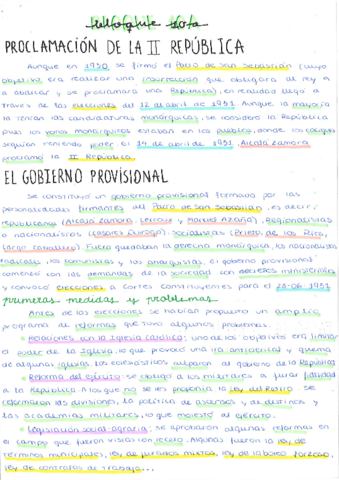 PROCLAMACIÓN DE LA II REPÚBLICA
Aunque en 1930 se firmó el Pacto de San Sebastián (cuyo
objetivo era realizar una insurrección que obligara al rey a
a abdicar y se proclamara una República), en realidad llegó a
través de las elecciones del 12 de abril de 1931. Aunque la mayoría
la tenían las candidaturas monárquicas, se considera la República
pues los votos monárquicos estaban en los pueblos, donde los caciques
seguían teniendo poder. El 14 de abril de 1931, Alcalá Zamora
proclamó la II República.
EL GOBIERNO PROVISIONAL
Se constituyó un gobierno provisional formado por las
personalidades firmantes del Pacto de San Sebastián, es decir,
republicanos (Alcalá Zamora, Lerroux y Manuel Azaña), Regionalistas
o nacionalistas (Casares Quiroga), Socialistas (Prieto, de los Ríos,
Largo Caballero). Fuera quedaban la derecha monárquica, los nacionalistas
radicales, los comunistas y los anarquistas. El gobierno provisional
comenzó con las demandas de la sociedad con decretos ministeriales
y convocó elecciones a Cortes constituyentes para el 28-06-1931
primeras medidas y problemas
Antes de las elecciones se habían propuesto un amplio
programa de reformas que tuvo algunos problemas.
• Relaciones con la Iglesia católica: uno de los objetivos era limitar
el poder de la Iglesia, lo que provocó una ira anticlerical y quema
de algunas iglesias. Los eclesiásticos culparon al gobierno de la República
• Reforma del ejército: se obligó a los militares a jurar fidelidad
a la República. A los que no se les proponía la ley del retiro. Se
reformaron las divisiones, la política de ascensos y de destinos y
las academias militares, lo que molestó al ejército.
• Legislación social-agraria: se aprobaron algunas reformas en
el campo que fueron vistas con recelo. Algunas fueron la ley de
términos municipales, ley de jurados mixtos, ley de laboreo forzoso,
ley de contratos de trabajo...